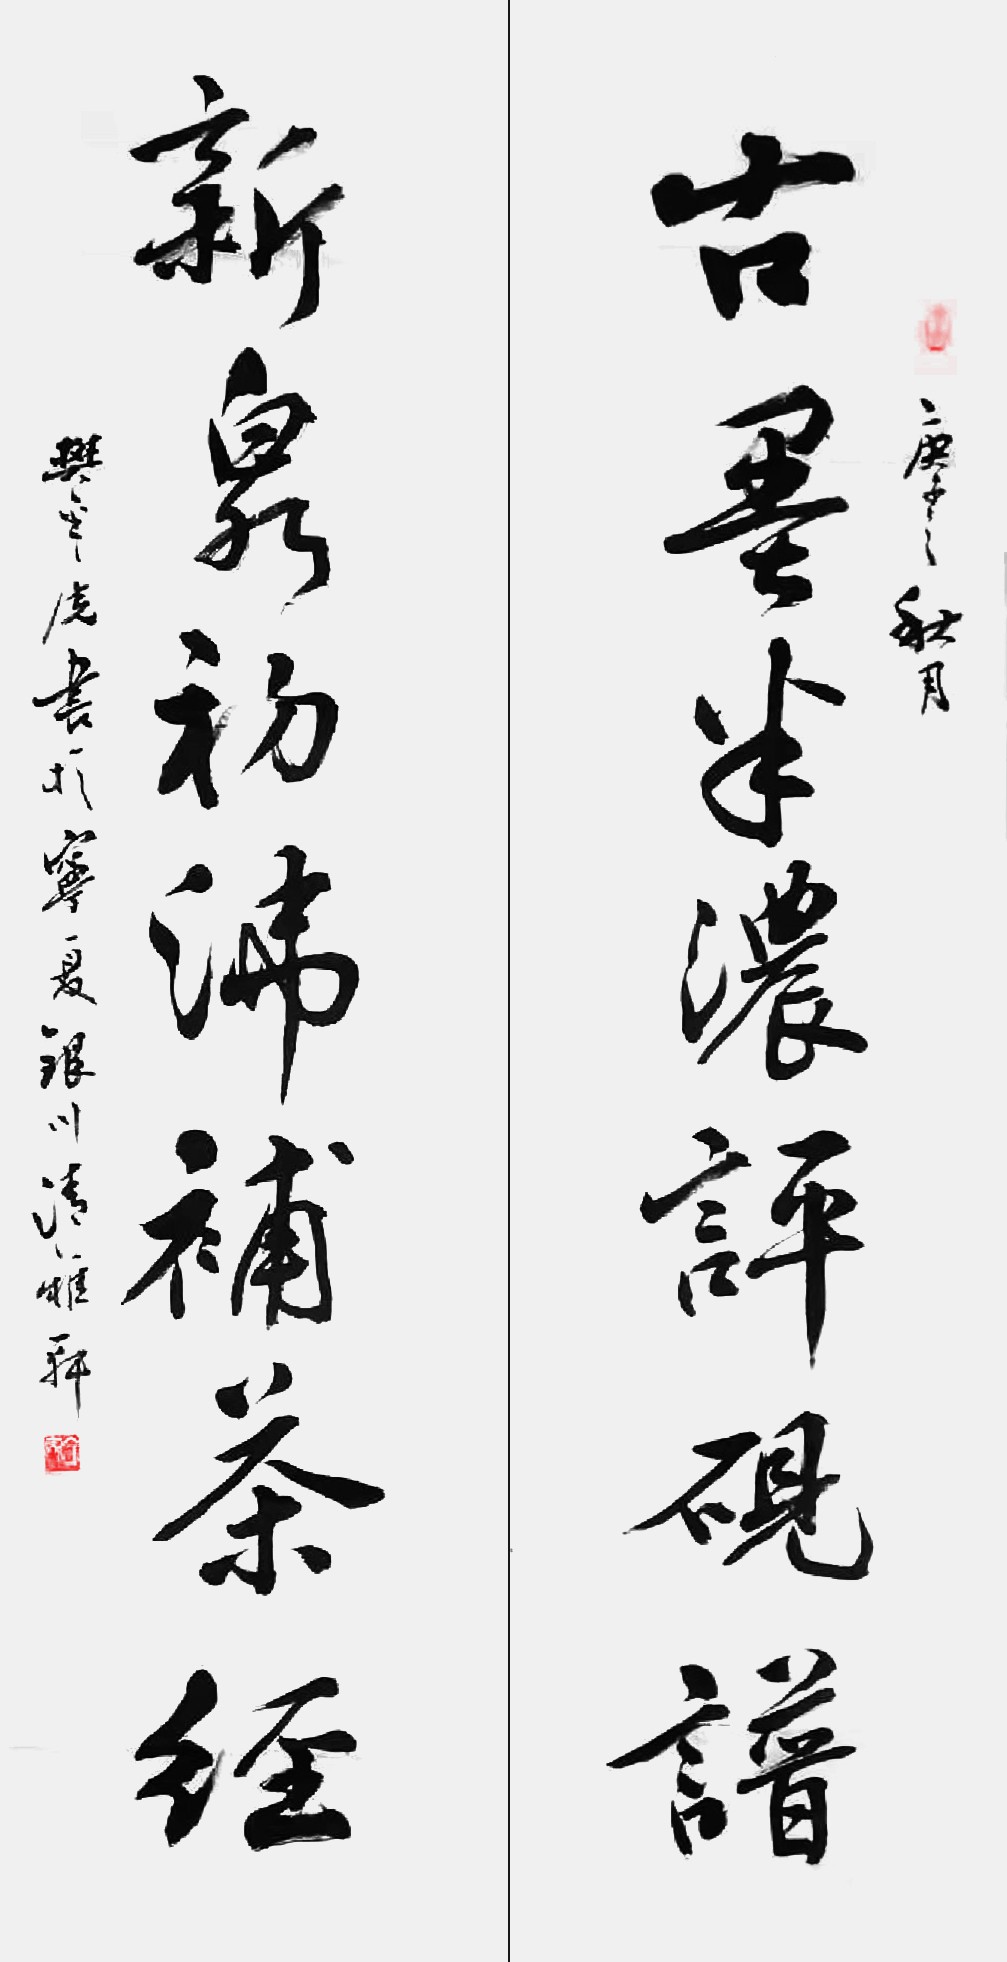 庚子之秋月
古墨半濃評硯譜
新泉初沸補茶經
樊虎書於寧夏銀川清雅軒